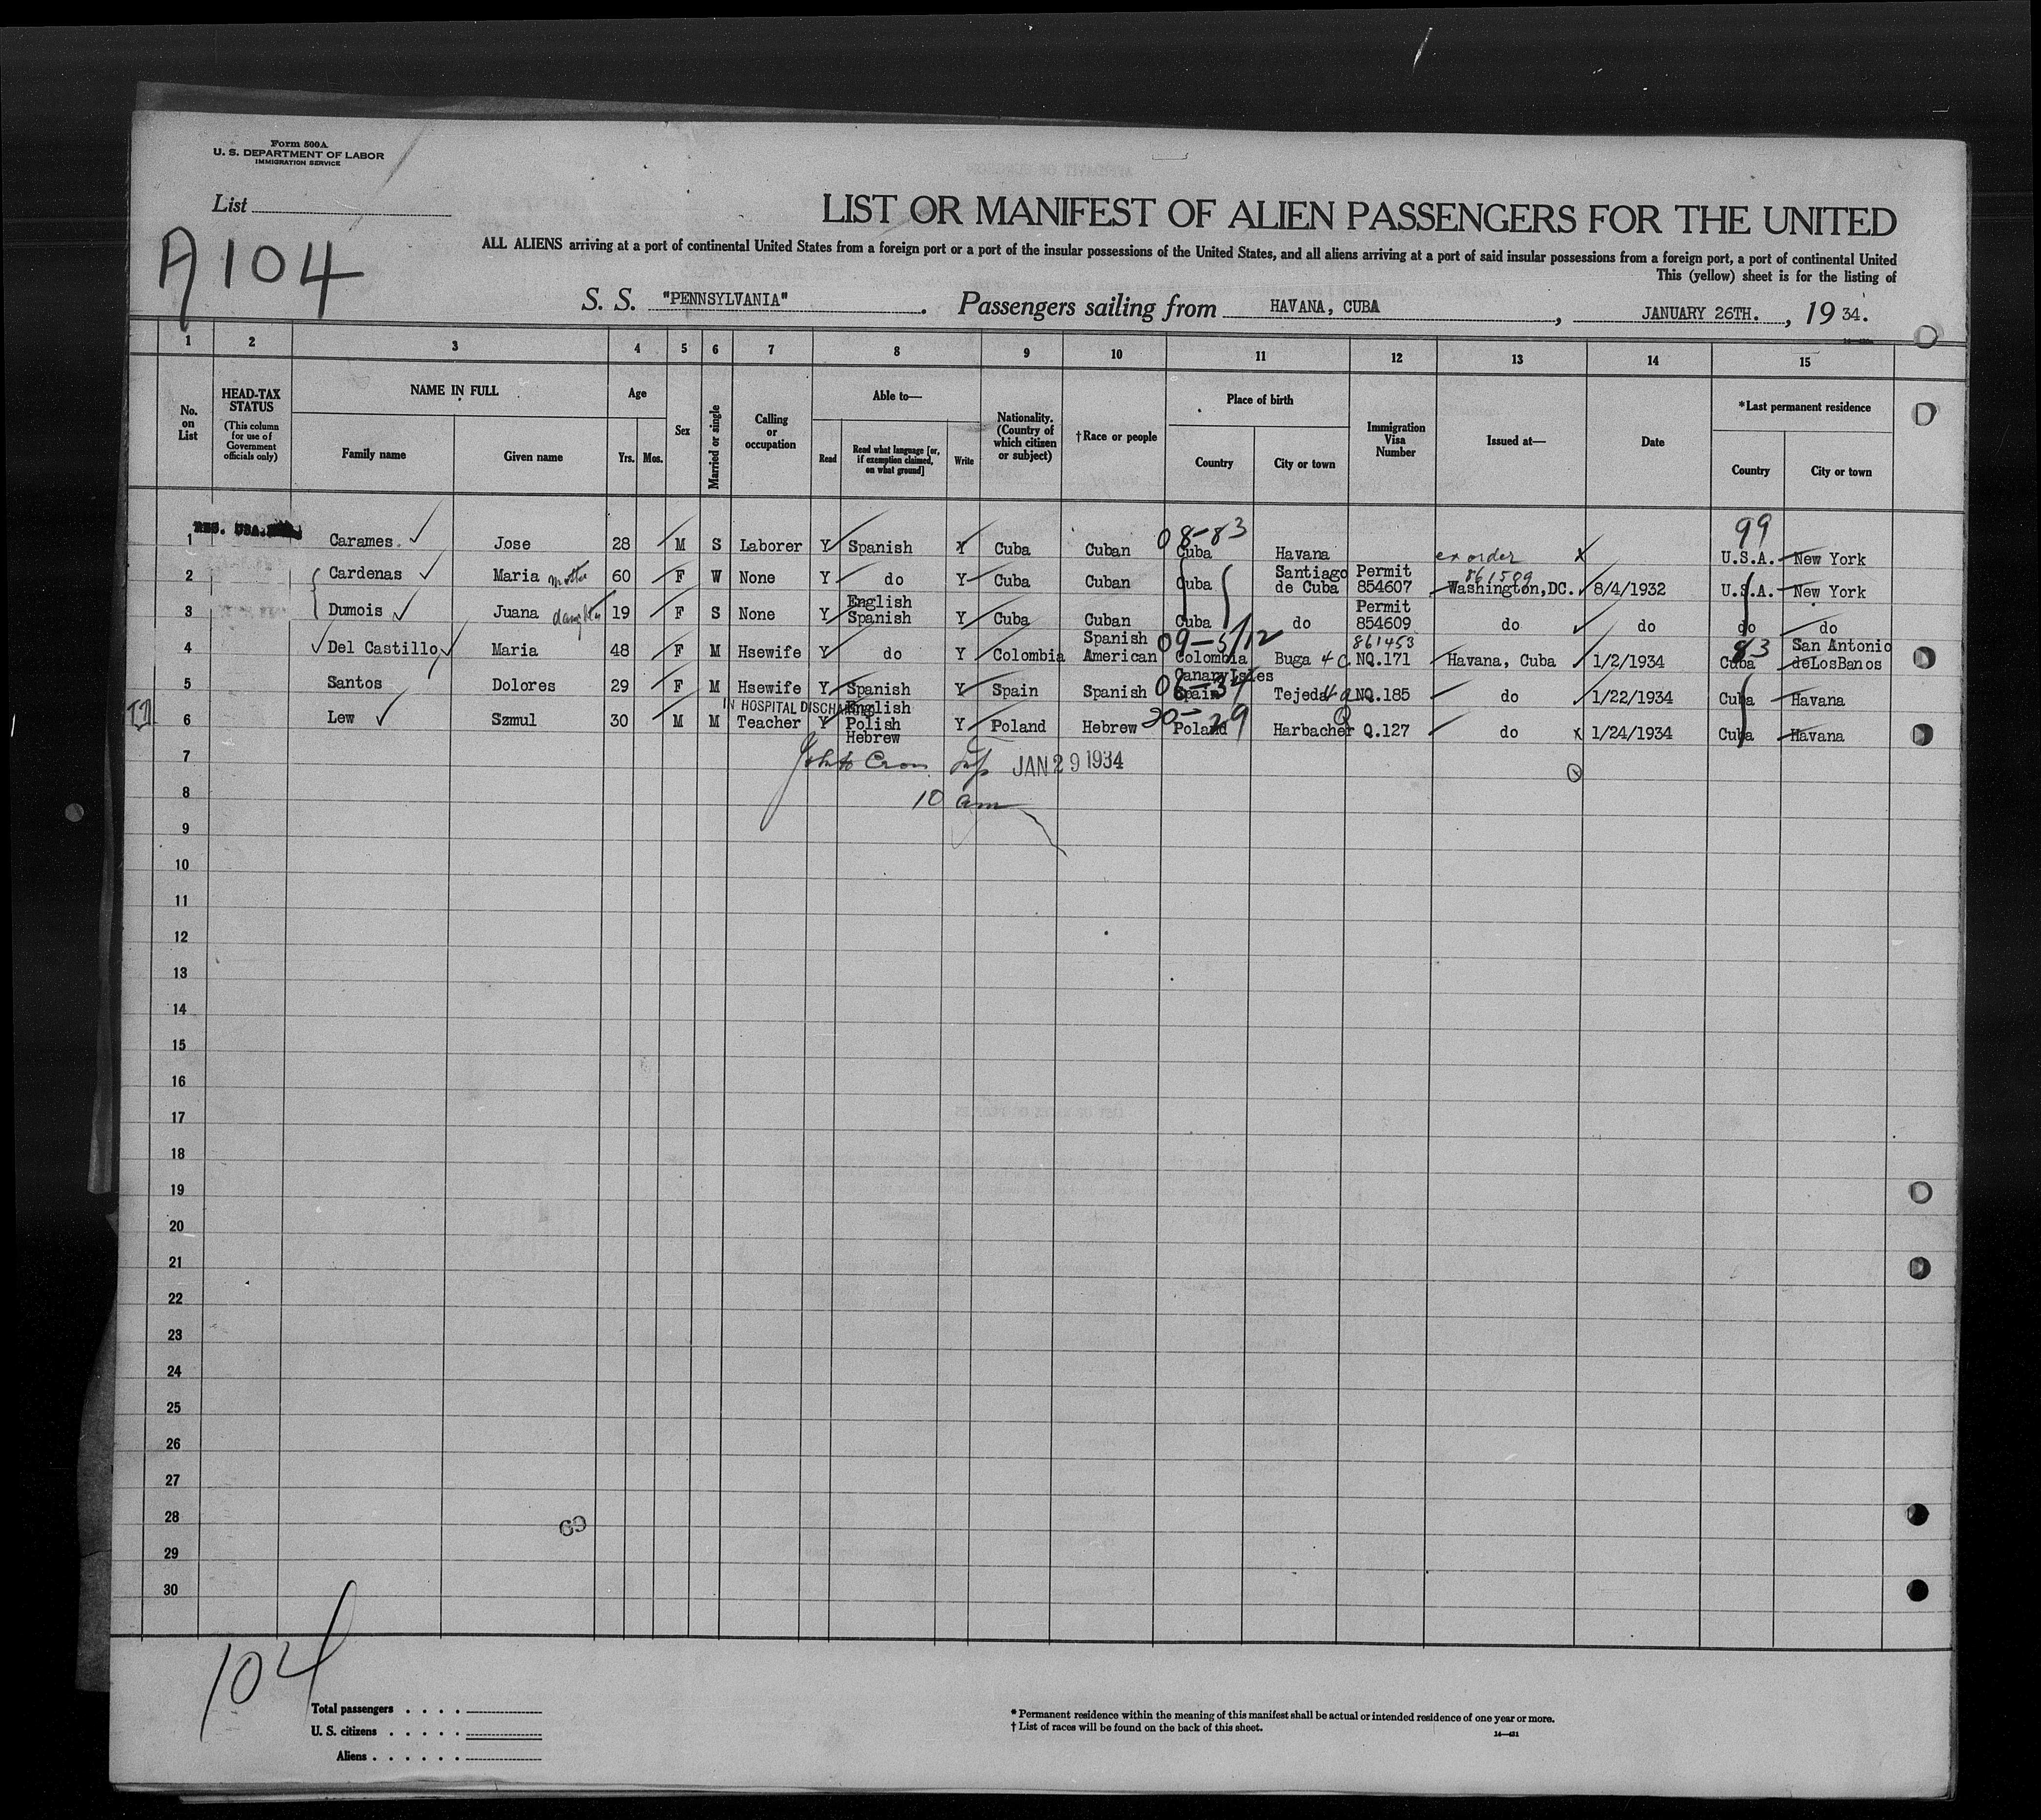 Form 500A
U. S. DEPARTMENT OF LABOR
IMMIGRATION SERVICE
List
A104
LIST OR MANIFEST OF ALIEN PASSENGERS FOR THE UNITED
ALL ALIENS arriving at a port of continental United States from a foreign port or a port of the insular possessions of the United States, and all aliens arriving at a port of said insular possessions from a foreign port, a port of continental United
This (yellow) sheet is for the listing of
S. S. "PENNSYLVANIA" . Passengers sailing from HAVANA, CUBA , JANUARY 26TH. , 19 34.
1 2 3 4 5 6 7 8 9 10 11 12 13 14 15
No. on List
HEAD-TAX STATUS (This column for use of Government officials only)
NAME IN FULL
Family name
Given name
Age
Yrs. Mos.
Sex
Married or single
Calling or occupation
Able to—
Read
Read what language [or, if exemption claimed, on what ground]
Write
Nationality. (Country of which citizen or subject)
†Race or people
Place of birth
Country
City or town
Immigration Visa Number
Issued at—
Date
*Last permanent residence
Country
City or town
08-83 99
1 Carames. Jose 28 M S Laborer Y Spanish Y Cuba Cuban Cuba Havana ex order x U.S.A. New York
2 Cardenas Maria mother 60 F W None Y do Y Cuba Cuban Cuba Santiago de Cuba Permit 854607 861509 Washington,DC. 8/4/1932 U.S.A. New York
3 Dumois Juana daughter 19 F S None Y English Spanish Y Cuba Cuban Cuba do Permit 854609 do do do do
09-5/12 861453 83
4 Del Castillo Maria 48 F M Hsewife Y do Y Colombia Spanish American Colombia Buga 4 C NQ.171 Havana, Cuba 1/2/1934 Cuba San Antonio deLosBanos
5 Santos Dolores 29 F M Hsewife Y Spanish Y Spain Spanish Canary Isles Spain Tejeda NQ.185 do 1/22/1934 Cuba Havana
IN HOSPITAL DISCHARGED
6 Lew Szmul 30 M M Teacher Y English Polish Hebrew Y Poland Hebrew 20-29 Poland Harbacher Q.127 do x 1/24/1934 Cuba Havana
7 JAN 29 1934
8 10 am
9
10
11
12
13
14
15
16
17
18
19
20
21
22
23
24
25
26
27
28
29
30
104
Total passengers . . . .
U. S. citizens . . . . .
Aliens . . . . . .
* Permanent residence within the meaning of this manifest shall be actual or intended residence of one year or more.
† List of races will be found on the back of this sheet.
14—431